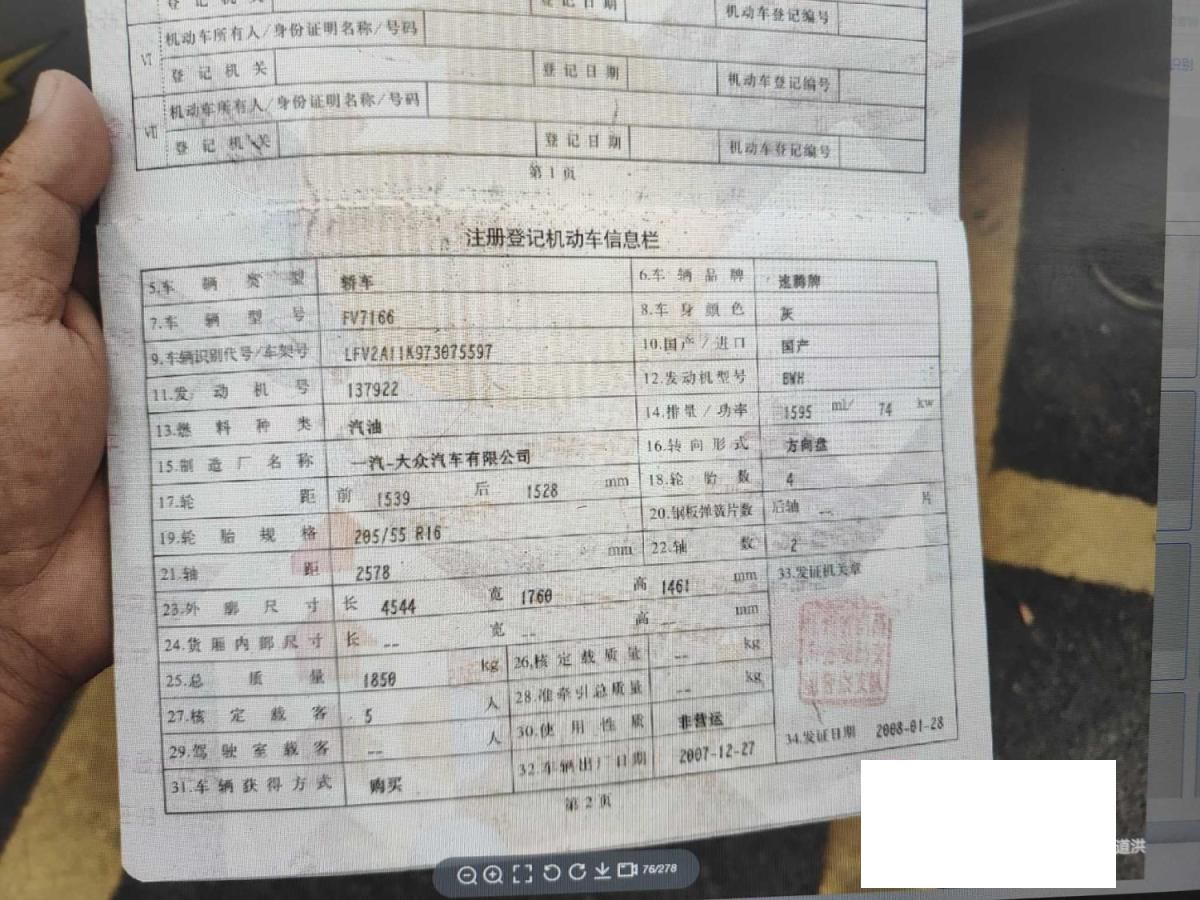 登记机关 登记日期 机动车登记编号
Ⅵ 机动车所有人/身份证明名称/号码
登记机关 登记日期 机动车登记编号
Ⅶ 机动车所有人/身份证明名称/号码
登记机关 登记日期 机动车登记编号
第1页
注册登记机动车信息栏
5.车辆类型 轿车 6.车辆品牌 速腾牌
7.车辆型号 FV7166 8.车身颜色 灰
9.车辆识别代号/车架号 LFV2A11K973075597 10.国产/进口 国产
11.发动机号 137922 12.发动机型号 BWH
13.燃料种类 汽油 14.排量/功率 1595 ml/ 74 kw
15.制造厂名称 一汽-大众汽车有限公司 16.转向形式 方向盘
17.轮距 前 1539 后 1528 mm 18.轮胎数 4
19.轮胎规格 205/55 R16 20.钢板弹簧片数 后轴 -- 片
21.轴距 2578 mm 22.轴数 2
23.外廓尺寸 长 4544 宽 1760 高 1461 mm 33.发证机关章
24.货厢内部尺寸 长 -- 宽 -- 高 -- mm
25.总质量 1850 kg 26.核定载质量 -- kg
27.核定载客 5 人 28.准牵引总质量 -- kg
29.驾驶室载客 -- 人 30.使用性质 非营运
31.车辆获得方式 购买 32.车辆出厂日期 2007-12-27 34.发证日期 2008-01-28
第2页
道洪
76/278